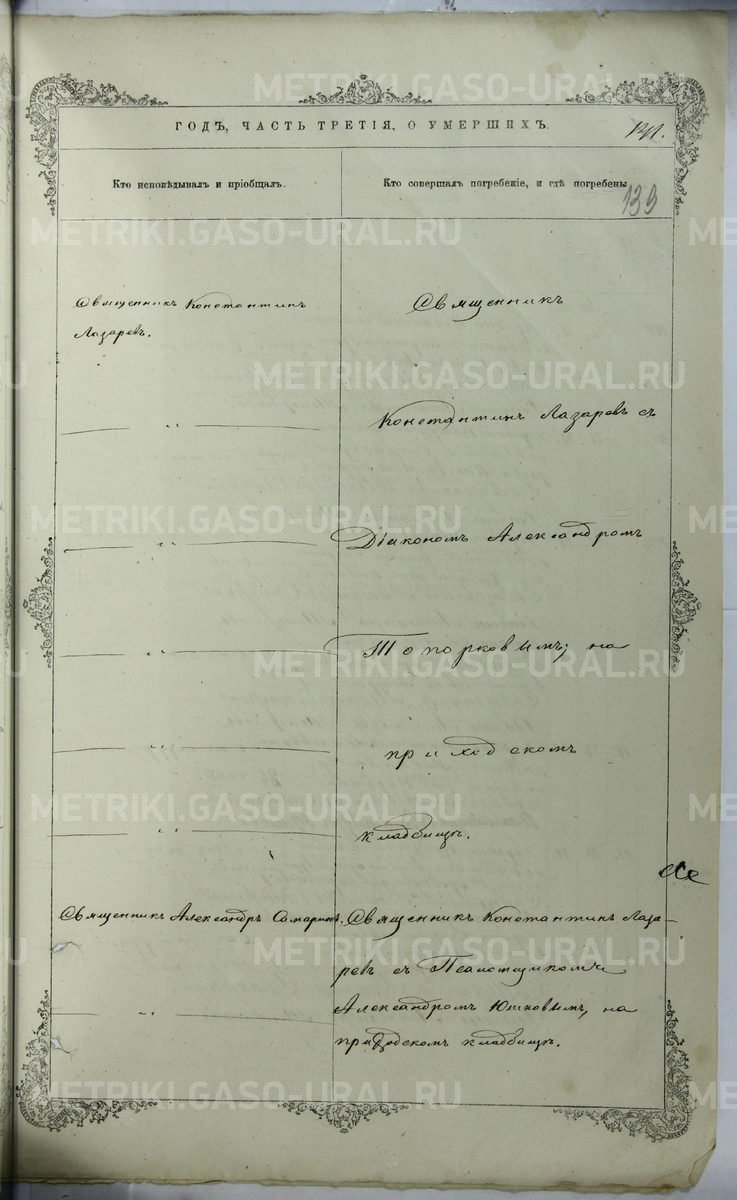 ГОДЪ, ЧАСТЬ ТРЕТІЯ, О УМЕРШИХЪ.
139
Кто исповѣдывалъ и пріобщалъ.
Кто совершалъ погребеніе, и гдѣ погребены
Священникъ Константинъ
Лазаревъ.
— " —
— " —
— " —
— " —
— " —
Священникъ
Константинъ Лазаревъ съ
Діакономъ Александромъ
Топорковымъ; на
приходскомъ
кладбищѣ.
Священникъ Александръ Самаринъ.
— " —
Священникъ Константинъ Лаза-
ревъ съ Псаломщикомъ
Александромъ Юшковымъ, на
приходскомъ кладбищѣ.
METRIKI.GASO-URAL.RU